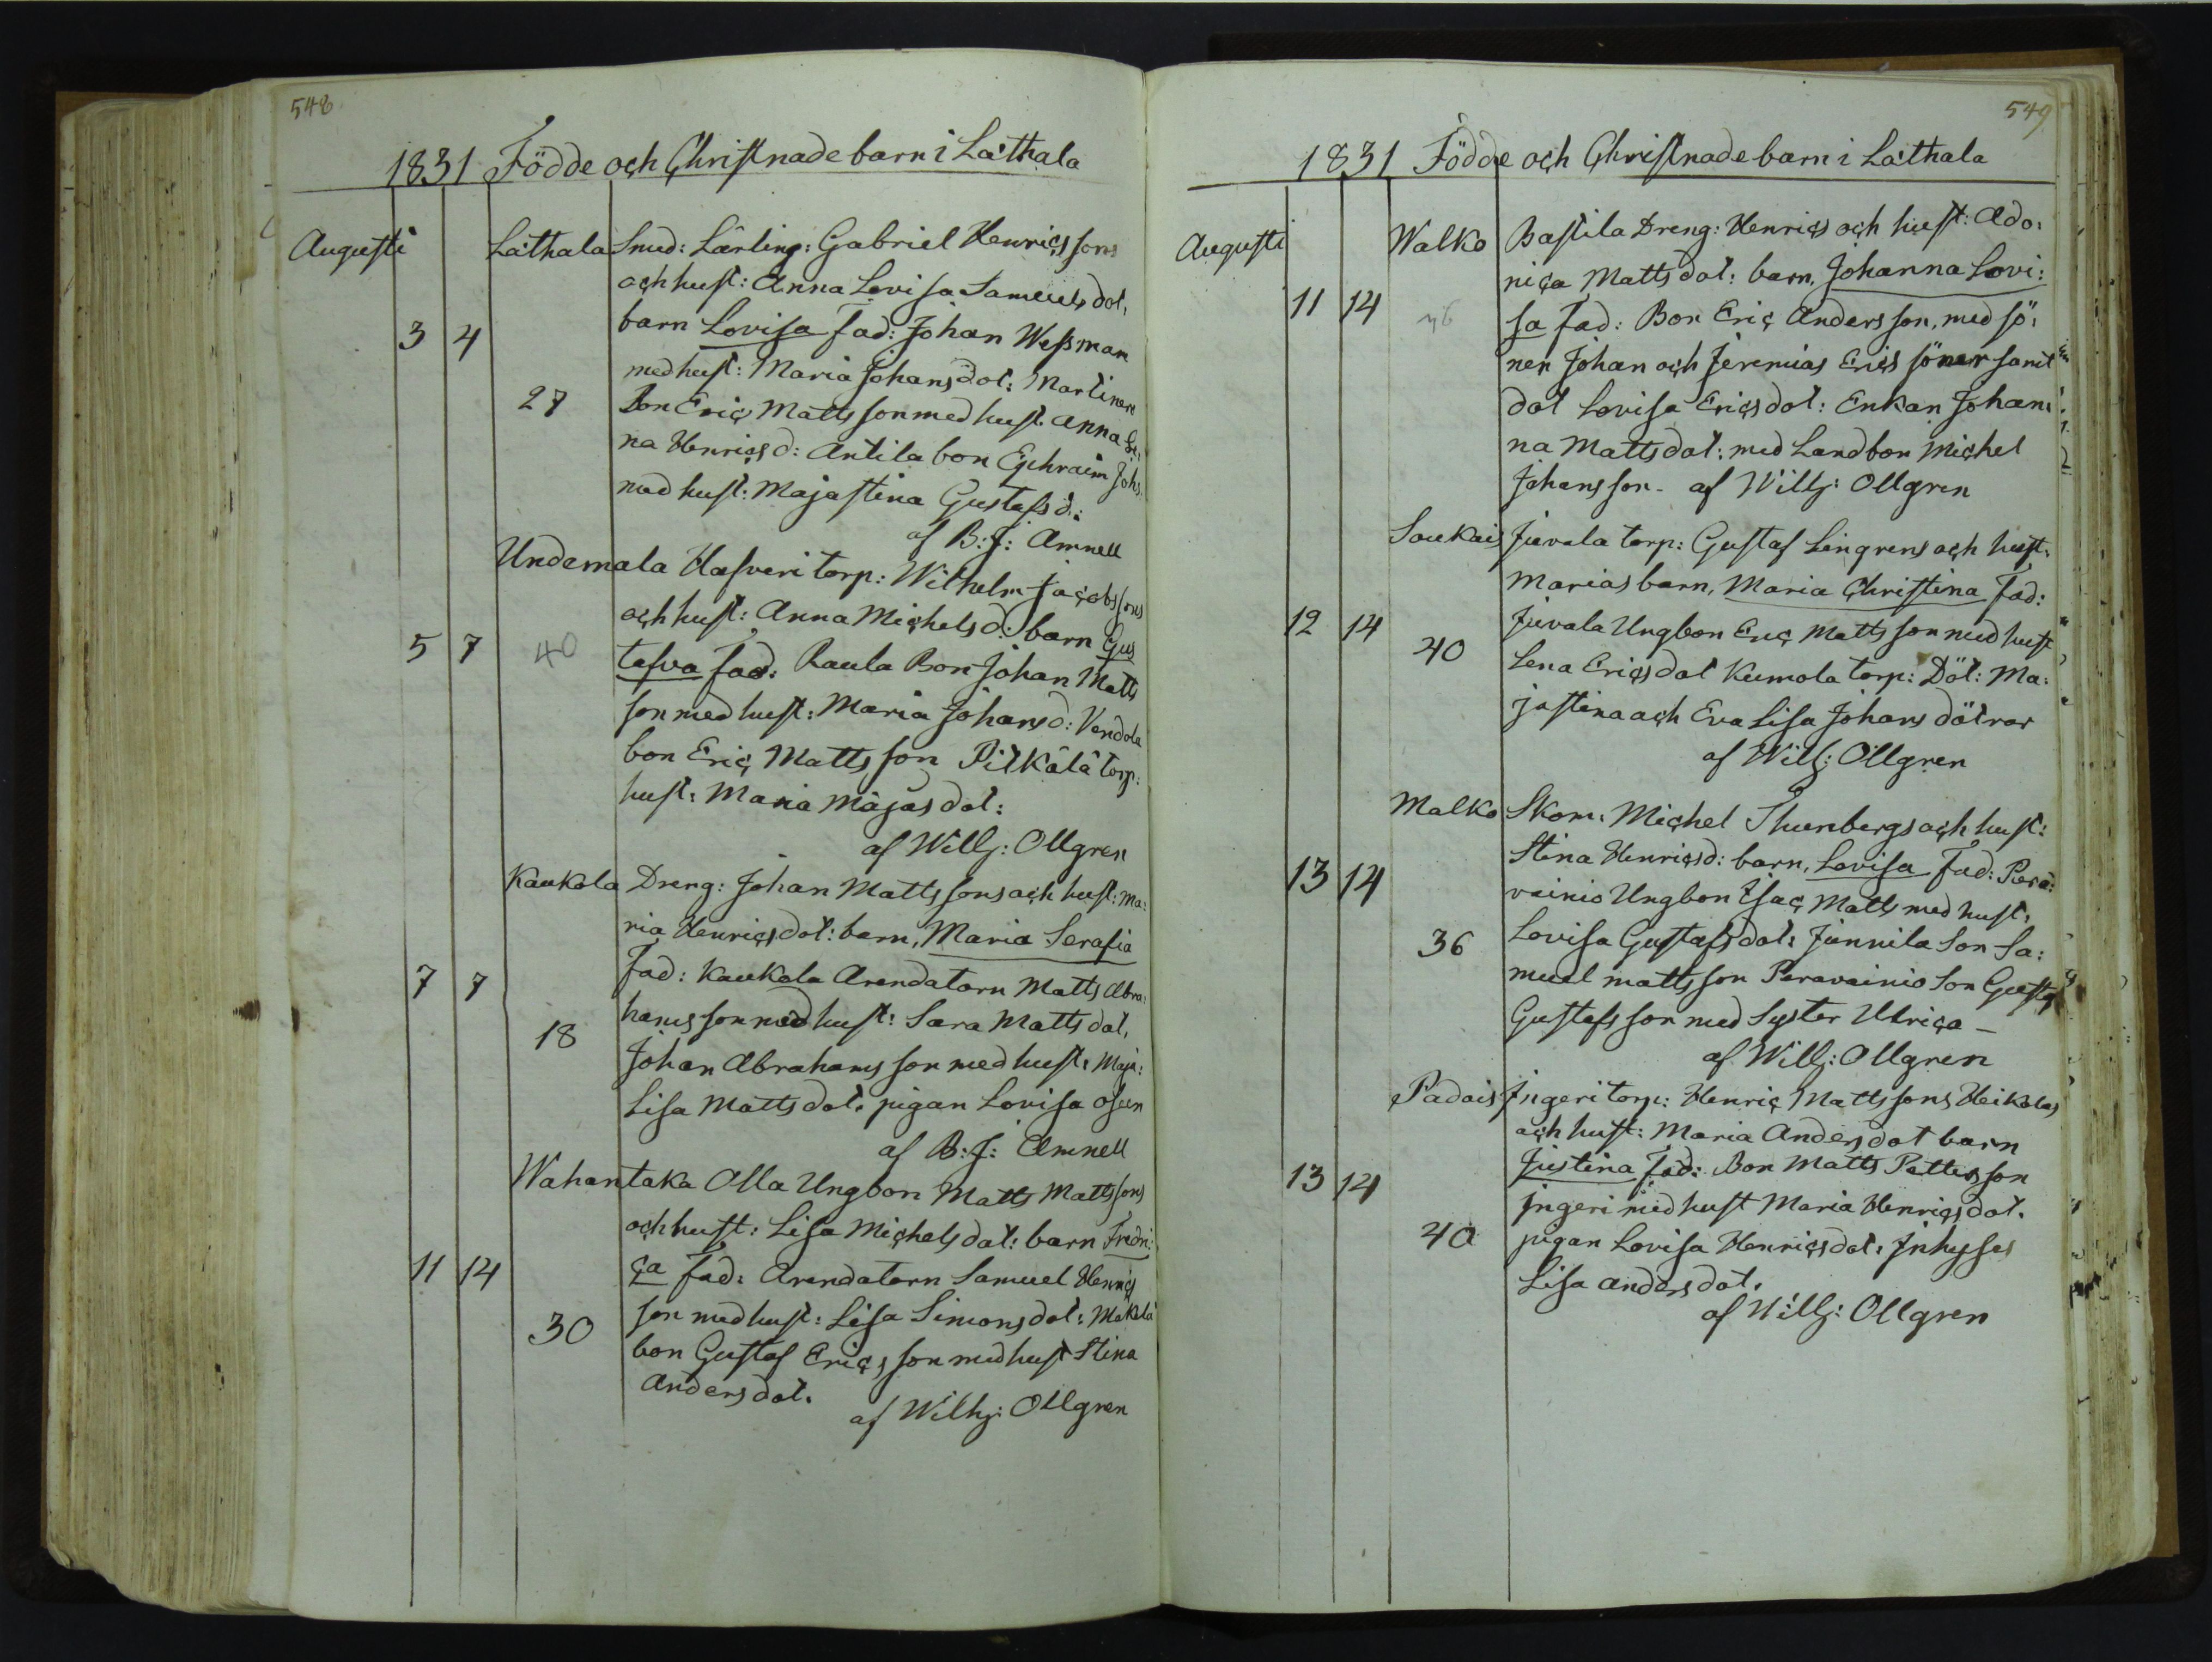 548
1831 Födde och Christnade barn i Laithala
Augusti Laithala Smed: Lärling: Gabriel Henricssons
och hust: Anna Lovisa Samuels dot,
3 4 barn Lovisa Fad: Johan Wessman
med hust: Maria Johansdot: Martinen
27 Son Eric Mattsson med hust. Anna Le,
na Henricsd: Antila bon Ephraim Johs.
med hust: Majastina Gustafsd:
af B: J: Amnell
Undemala Hasveri torp: Wilhelm Jacobssons
och hust: Anna Michelsd: barn Gus
5 7 40 tafva Fad: Raula Bon Johan Matts
son med hust: Maria Johansd: Vendola
bon Eric Mattsson Pilkälä torp:
hust: Maria Majasdot:
af Willh: Ollgren
Kaukola Dreng: Johan Mattssons och hust: Ma:
ria Henricsdot: barn, Maria Serafia
7 7 Fad: Kaukola Arendatorn Matts Abra:
18 hamsson med hust: Sara Matts dot,
Johan Abrahamsson med hust: Maja:
Lisa Mattsdot. pigan Lovisa
af B: J: Amnell
Wahantaka Olla Ungbon Matts Mattssons
och hust: Lisa Michelsdot: barn Fredri:
11 14 ca Fad: Arendatorn Samuel Henrics
30 son med hust: Lisa Simonsdot: Mäkelä
bon Gustaf Ericsson med hust Stina
Andersdot.
af Willh: Ollgren
549
1831 Födde och Christnade barn i Laithala
Augusti Walko Bastila Dreng: Henrics och hust: Ado:
nica Mattsdot: barn, Johanna Lovi:
11 14 sa Fad: Bon Eric Andersson, med sö:
nen Johan och Jeremias Erics söner samt
dot Lovisa Ericsdot: Enkan Johan:
na Mattsdot: med Landbon Michel
Johansson. af Willh: Ollgren
Soukais Juvala torp: Gustaf Lingrens och hust.
Marias barn, Maria Christina Fad:
12 14 Juvala Ungbon Eric Mattsson med hust
40 Lena Ericsdot Kumola torp: Döt: Ma:
jastina och Eva Lisa Johans dötrar
af Willh: Ollgren
Malko Skom. Michel Thunbergs och hust:
Stina Henricsd: barn, Lovisa Fad: Perä:
13 14 vainio Ungbon Isac Matts med hust.
36 Lovisa Gustafsdot: Junnila Son Sa:
muel mattsson Peravainio Son Gustaf
Gustafsson med Syster Ulrica —
af Willh: Ollgren
Padais Jngeri torp: Henric Mattssons Heikolas
och hust: Maria Andersdot barn
13 14 Justina Fad: Bon Matts Pettersson
Jngeri med hust Maria Henricsdot.
40 pigan Lovisa Henricsdot. Jnhyses
Lisa andersdot.
af Willh: Ollgren